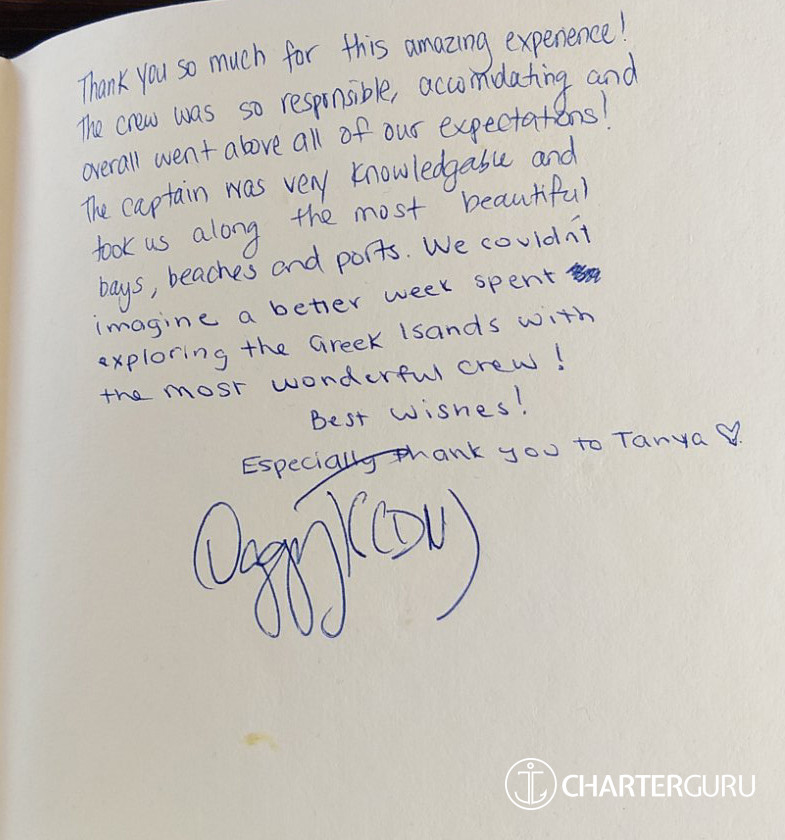 Thank you so much for this amazing experience!
The crew was so responsible, accomidating and
overall went above all of our expectations!
The captain was very knowledgable and
took us along the most beautiful
bays, beaches and ports. We couldn't
imagine a better week spent
exploring the Greek Isands with
the most wonderful crew!
Best wishes!
Especially thank you to Tanya ♡
(CDN)
CHARTERGURU